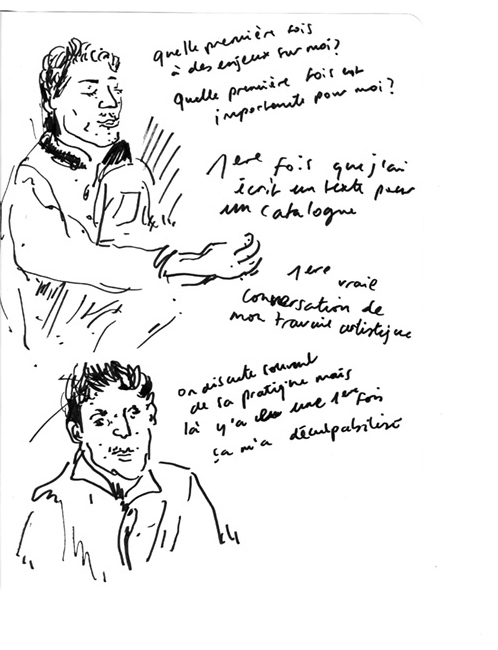 quelle première fois
à des enjeux sur moi?
quelle première fois est
importante pour moi?
1ere fois que j'ai
écrit un texte pour
un catalogue
1ere vraie
conversation de
mon travail artistique
on discute souvent
de sa pratique mais
là y'a eu une 1ere fois
ça m'a déculpabilisé